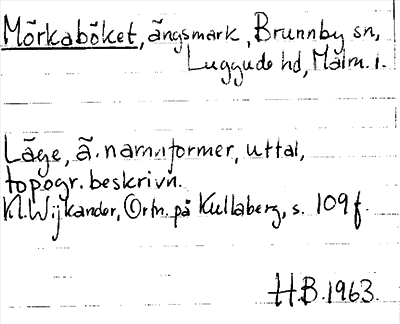 Mörkaböket, ängsmark, Brunnby sn,
Luggude hd, Malm. l.
Läge, ä. namnformer, uttal,
topogr. beskrivn.
Kl. Wijkander, Ortn. på Kullaberg, s. 109 f.
H.B. 1963.